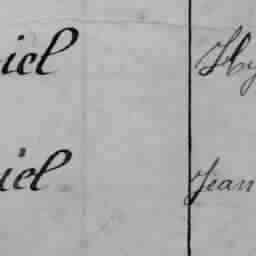 iel Hy
iel Jean